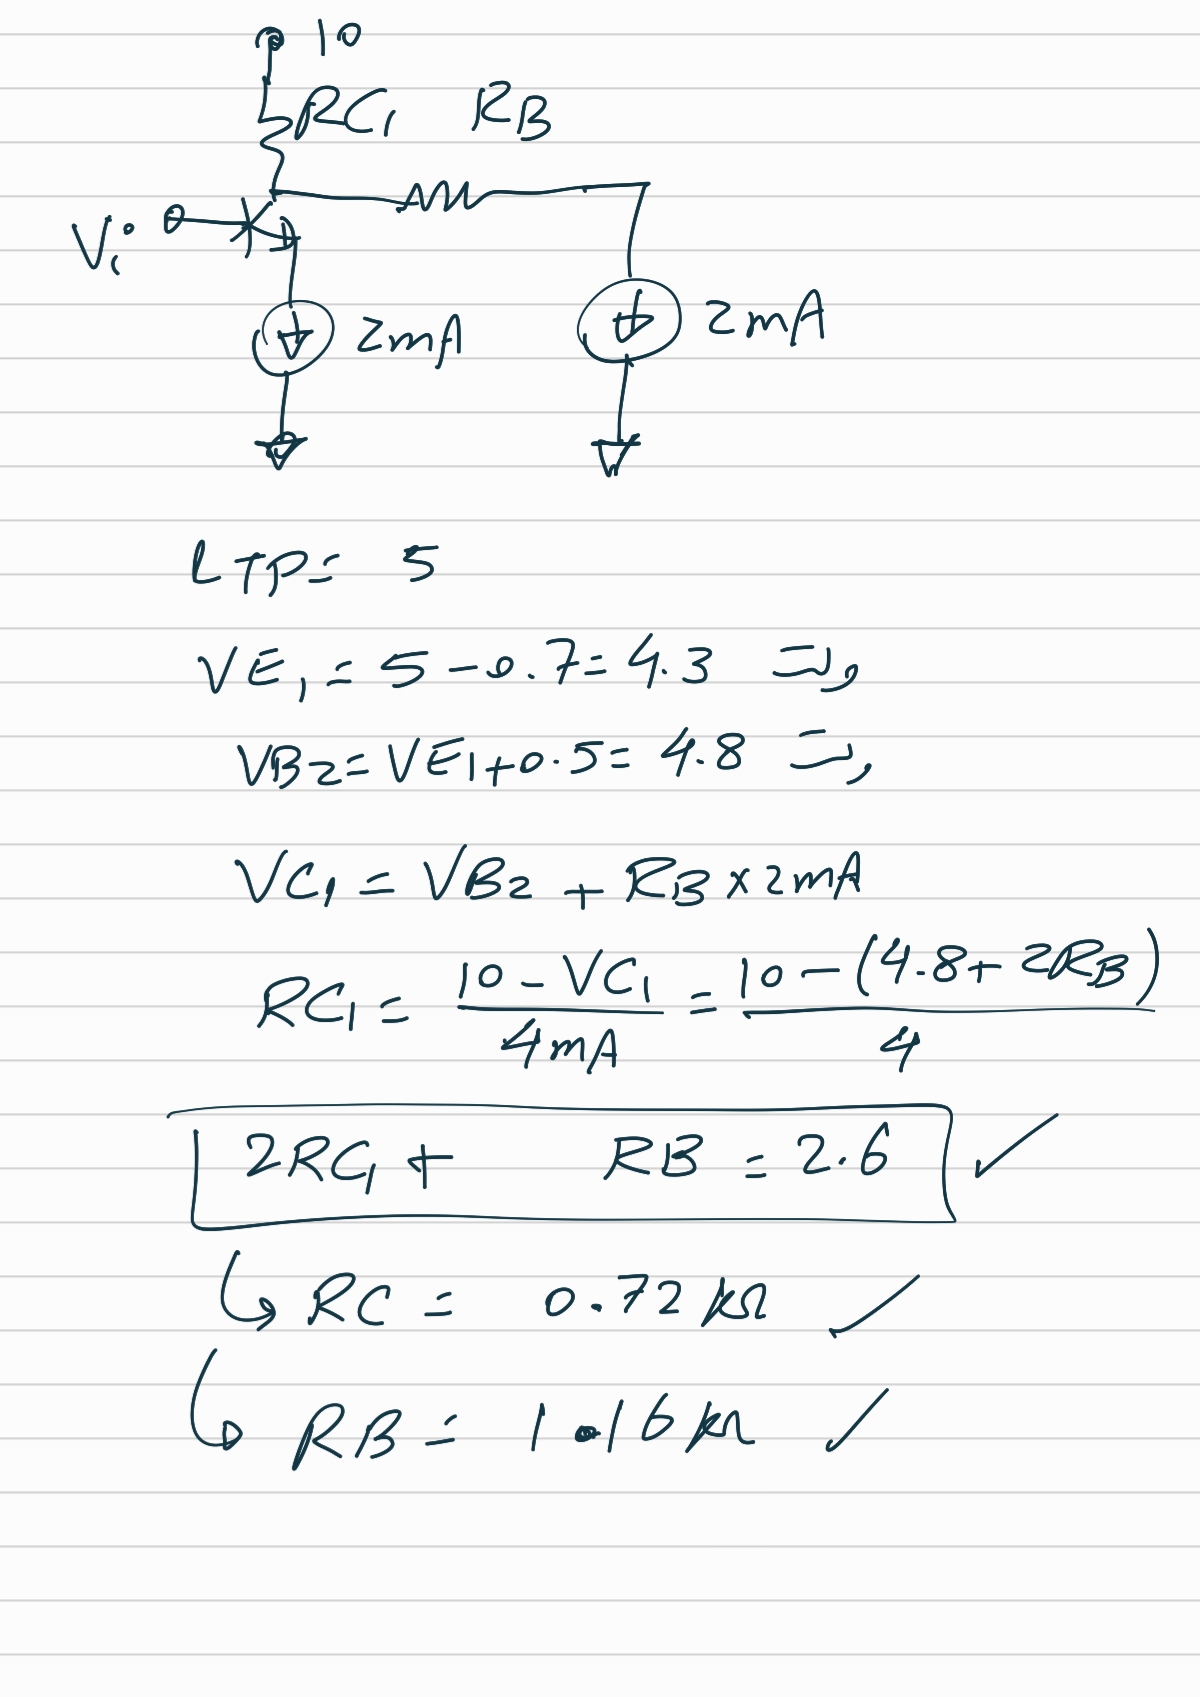 10
RC1 RB
Vi
2mA 2mA
LTP = 5
VE1 = 5 - 0.7 = 4.3 ⇒,
VB2 = VE1 + 0.5 = 4.8 ⇒,
VC1 = VB2 + RB x 2mA
RC1 = (10 - VC1)/4mA = (10 - (4.8 + 2RB))/4
2RC1 + RB = 2.6 ✓
↳ RC = 0.72 kΩ ✓
↳ RB = 1.16 kΩ ✓